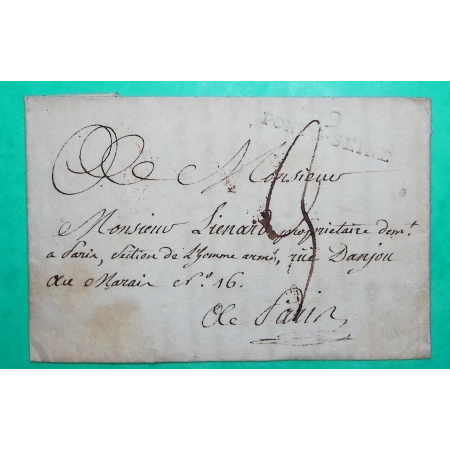 9
PONT S SEINE
A Monsieur
Monsieur Lienard propriétaire demt.
a Paris, Section de L'homme armé, rue Danjou
au Marais No. 16.
A Paris